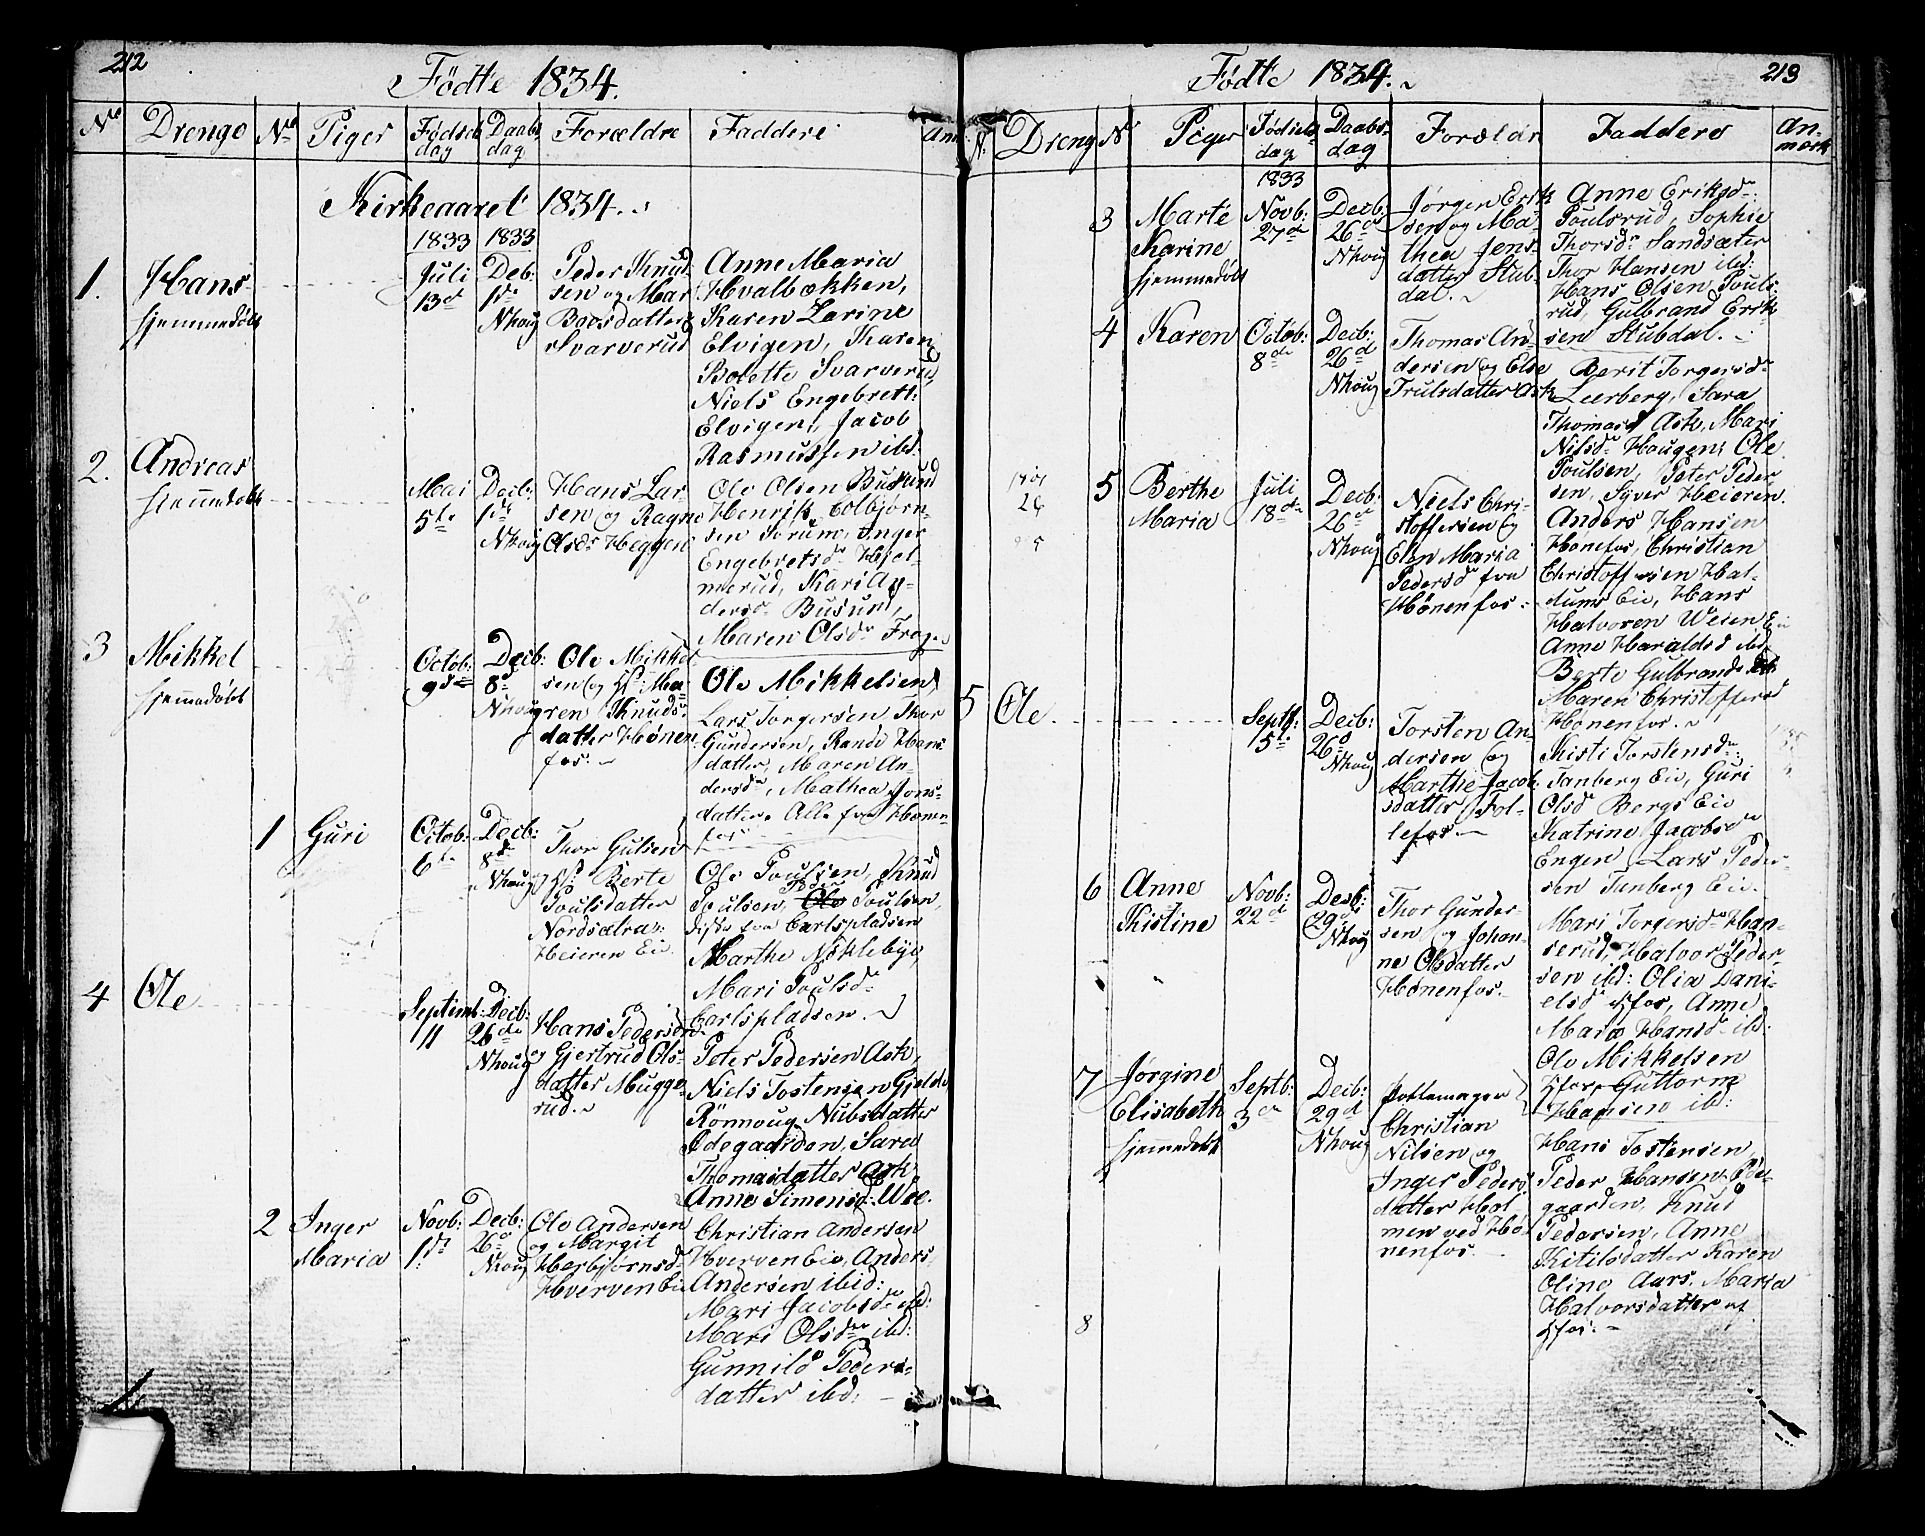 212
Födte 1834.
No Drenge No Piger Fødsels dag Daabs dag Forældre Faddere Anm
Kirkeaaret 1834.
1833 1833
1. Hans
hjemmedøbt
Juli
13de
Deb:
1ste
Nhoug
Peder Knud
sen og Mar
Boesdatter
Svarverud
Anne Maria
Hvalbækken,
Karen Larine
Elvigen, Karen
Bolette Svarverud,
Niels Engebrett:
Elvigen, Jacob
Rasmussen ibd.
2. Andreas
hjemmedøbt
Mai
5te
Decb:
1ste
Nhoug
Hans Lar-
sen og Ragne
Olsdr Heggen
Ole Olsen Busund
Henrik Colbjørn-
sen Sorum, Inger
Engebretsdr Hjel-
merud, Kari An-
dersdr Busund,
Maren Olsdr Frog
3 Mikkel
hjemmedøbt
Octob:
9de
Decb:
8de
Nhoug
Ole Mikkel
sen og H: Ma-
ren Knuds-
datter Hønen
fos.
Ole Mikkelsen
Lars Torgersen Thor
Gundersen, Randi Hans
datter, Maren An-
dersdr, Mathea Jons-
datter. Alle fra Hønen-
fos
1 Guri
Octob:
6te
Decb:
8de
Nhoug
Thor Gulsen
og H: Berte
Poulsdatter
Nordsætra,
Heieren Eie
Ole Poulsen, Knud
Poulsen, Peder Poulsen,
disse fra Carlspladsen
Marthe Nöklebye,
Mari Poulsdr
Carlspladsen.
4 Ole
Septemb:
11
Decb:
26de
Nhoug
Hans Pedersen
og Gjertrud Ols-
datter Mugge-
rud.
Peter Pedersen Ask,
Niels Tostensen Gjelde
Rönnoug Nubsdatter
Ødegaarden, Sara
Thomasdatter Ask,
Anne Simensd: Wee.
2 Inger
Maria
Novb:
1ste
Decb:
26de
Nhoug
Ole Andersen
og Margit
Herbjørnsdr
Hverven Eie
Christian Andersen
Hverven Eie, Anders
Andersen ibid:
Mari Jacobsdr ibd:
Mari Olsdr ibd:
Gunnild Peders-
datter ibd:
213
Födte 1834.
N. Dreng N Piger Fødsels dag Daabs- dag Forældr Faddere An- mærk
1833
3 Marte
Karine
hjemmedøbt
Novb:
27de
Decb:
26de
Nhoug
Jørgen Erik
sen og Ma-
thea Jens-
datter Stub-
dal.
Anne Eriksdr
Poulsrud, Sophie
Thorsdr Sandsæter
Thor Hansen ibd:
Hans Olsen Pouls-
rud, Gulbrand Erik
sen Stubdal.
4 Karen
Octob:
8de
Decb:
26de
Nhoug
Thomas An-
dersen og Else
Trulsdatter Ask
Berit Torgersdr
Leerberg, Sara
Thomasd Ask, Mari
Nilsdr Hougen, Ole
Poulsen, Peter Peder
sen, Syver Heieren.
5 Berthe
Maria
Juli
18de
Decb:
26de
Nhoug
Niels Chri-
stoffersen og
Elen Maria
Pedersdr fra
Hønenfos.
Anders Hansen
Hønefos, Christian
Christoffersen Hal-
dums Eie, Hans
Halvoren Weien Eie
Anne Haraldsd ibd
Berte Gulbrandsd ibd
Maren Christoffersd
Hønenfos.
5 Ole
Septb:
5te
Decb:
26de
Nhoug
Torsten An-
dersen og
Marthe Jacob-
sdatter Fol-
lefos.
Kisti Torstensdr
Tanberg Eie, Guri
Olsd Bergs Eie
Katrine Jacobsdr
Engen Lars Peder-
sen Tanberg Eie.
6 Anne
Kistine
Novb:
22de
Decb:
29de
Nhoug
Thor Gunder-
sen og Johan-
ne Olsdatter
Hønenfos.
Mari Torgersdr Han-
serud, Halvor Peder-
sen ibd: Olia Dani-
elsd Hfos, Anne
Maria Hansdr ibd:
Ole Mikkelsen
Hfos, Guttorm
Hansen ibd:
7 Jørgine
Elisabeth
hjemmedøbt
Septb:
3de
Decb:
29de
Nhoug
Pottemager
Christian
Nilsen og
Inger Peders
datter Hol
men ved Hø-
nenfos.
Hans Tostensen,
Peder Hansen Øde-
gaarden, Knud
Pedersen, Anne
Kitilsdatter Karen
Oline Aars, Maria
Halvorsdatter af
Hfos.
8